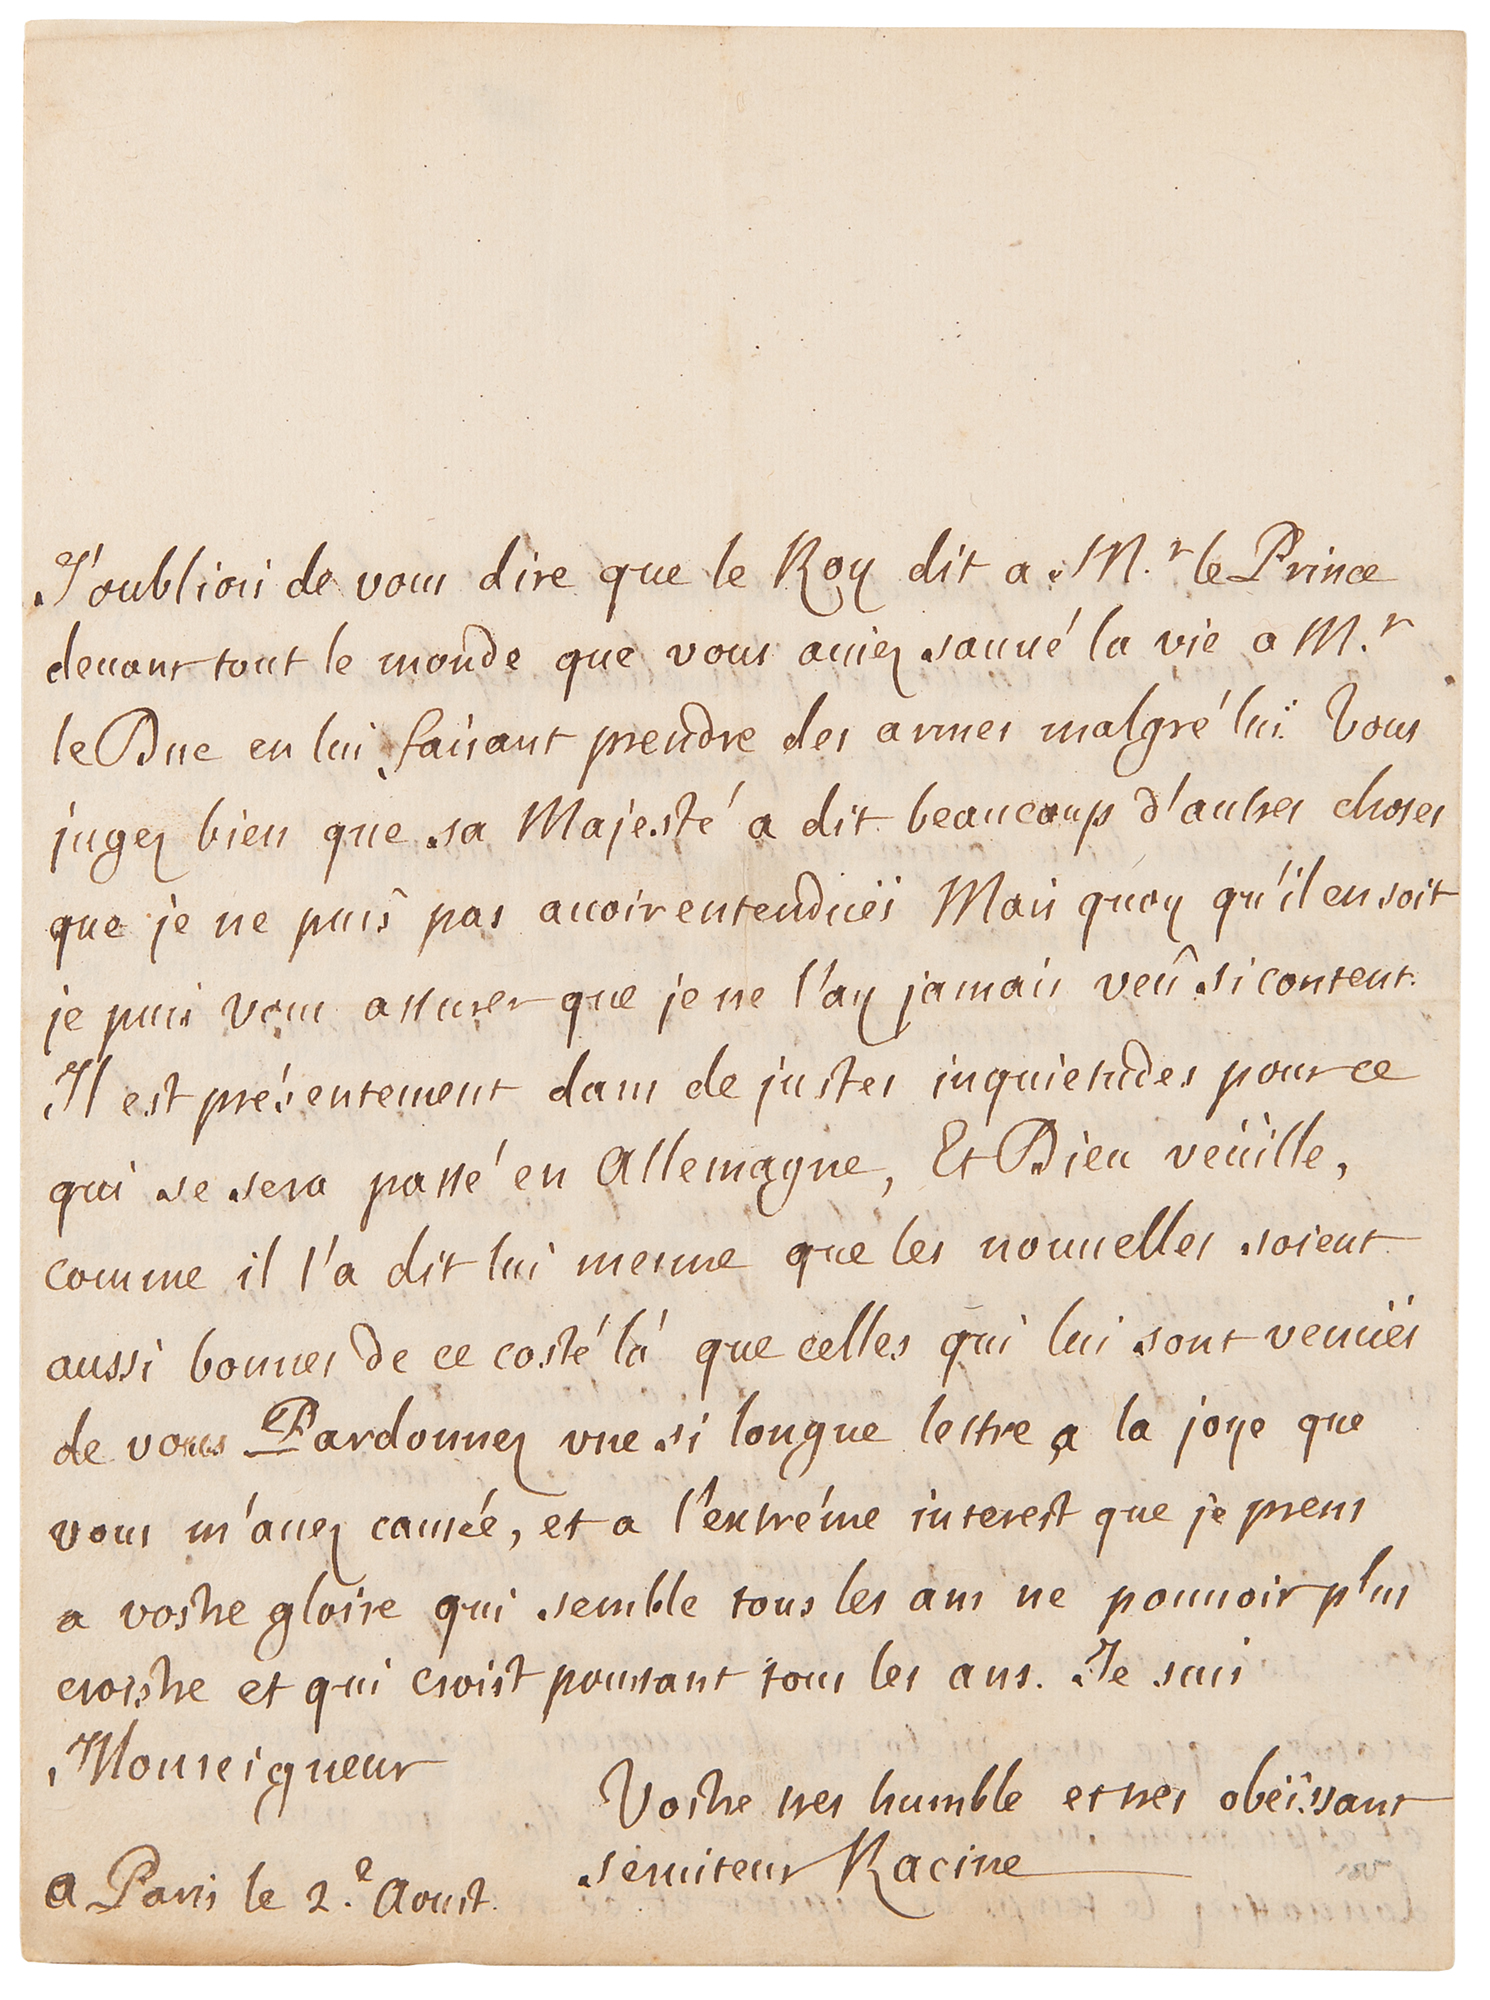 J'oubliois de vous dire que le Roy dit a Mr. le Prince
deuant tout le monde que vous auiez sauué la vie a Mr.
le Duc en lui faisant prendre des armes malgré lui. Vous
jugez bien que sa Majesté a dit beaucoup d'autres choses
que je ne puis pas auoir entenduës Mais quoy qu'il en soit
je puis vous assurer que je ne l'ay jamais veû si content.
Il est présentement dans de justes inquietudes pour ce
qui se sera passé en Allemagne, Et Dieu veüille,
comme il l'a dit lui mesme que les nouuelles soient
aussi bonnes de ce costé là que celles qui lui sont venuës
de vous Pardonnez vne si longue lettre a la joye que
vous m'auez causée, et a l'extréme interest que je prens
a vostre gloire qui semble tous les ans ne pouuoir plus
croistre et qui croist pourtant tous les ans. Je suis
Monseigneur
Vostre tres humble et tres obeïssant
seruiteur Racine
a Paris le 2.e Aoust.